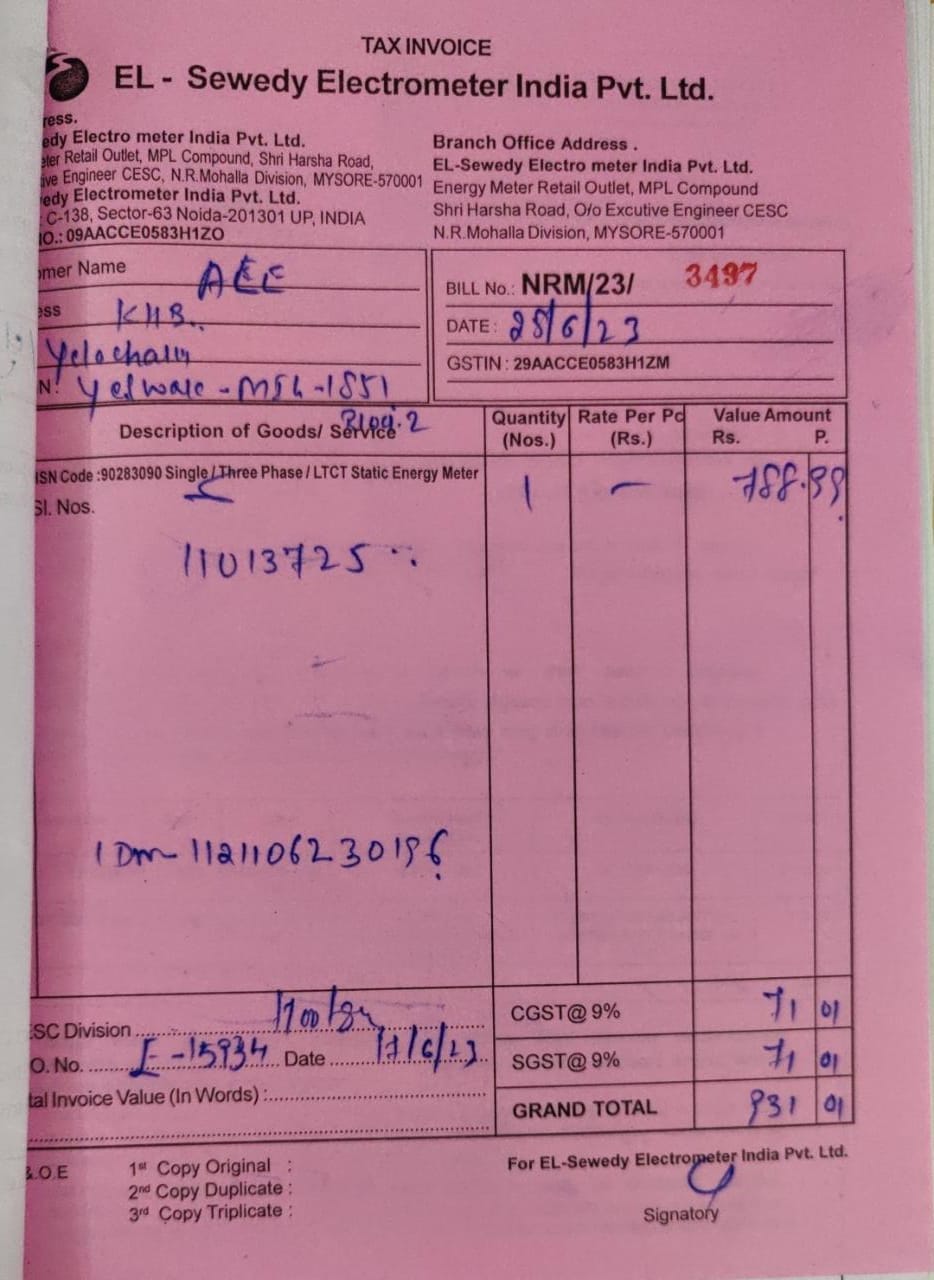 TAX INVOICE
EL - Sewedy Electrometer India Pvt. Ltd.
ress.
edy Electro meter India Pvt. Ltd.
eter Retail Outlet, MPL Compound, Shri Harsha Road,
ive Engineer CESC, N.R.Mohalla Division, MYSORE-570001
edy Electrometer India Pvt. Ltd.
C-138, Sector-63 Noida-201301 UP, INDIA
IO.: 09AACCE0583H1ZO
Branch Office Address .
EL-Sewedy Electro meter India Pvt. Ltd.
Energy Meter Retail Outlet, MPL Compound
Shri Harsha Road, O/o Excutive Engineer CESC
N.R.Mohalla Division, MYSORE-570001
omer Name AEE
ess KHB
N: Yelwale - MSL-1851
BILL No.: NRM/23/ 3497
DATE : 28/6/23
GSTIN : 29AACCE0583H1ZM
Description of Goods/ Service
Quantity (Nos.)
Rate Per Pc (Rs.)
Value Amount
Rs. P.
ISN Code :90283090 Single / Three Phase / LTCT Static Energy Meter 1 – 788.99
Sl. Nos.
11013725
1121106230196
ESC Division
O. No. 15934 Date 17/6/23
tal Invoice Value (In Words) :
CGST@ 9% 71 01
SGST@ 9% 71 01
GRAND TOTAL 931 01
&.O.E
1st Copy Original :
2nd Copy Duplicate :
3rd Copy Triplicate :
For EL-Sewedy Electrometer India Pvt. Ltd.
Signatory